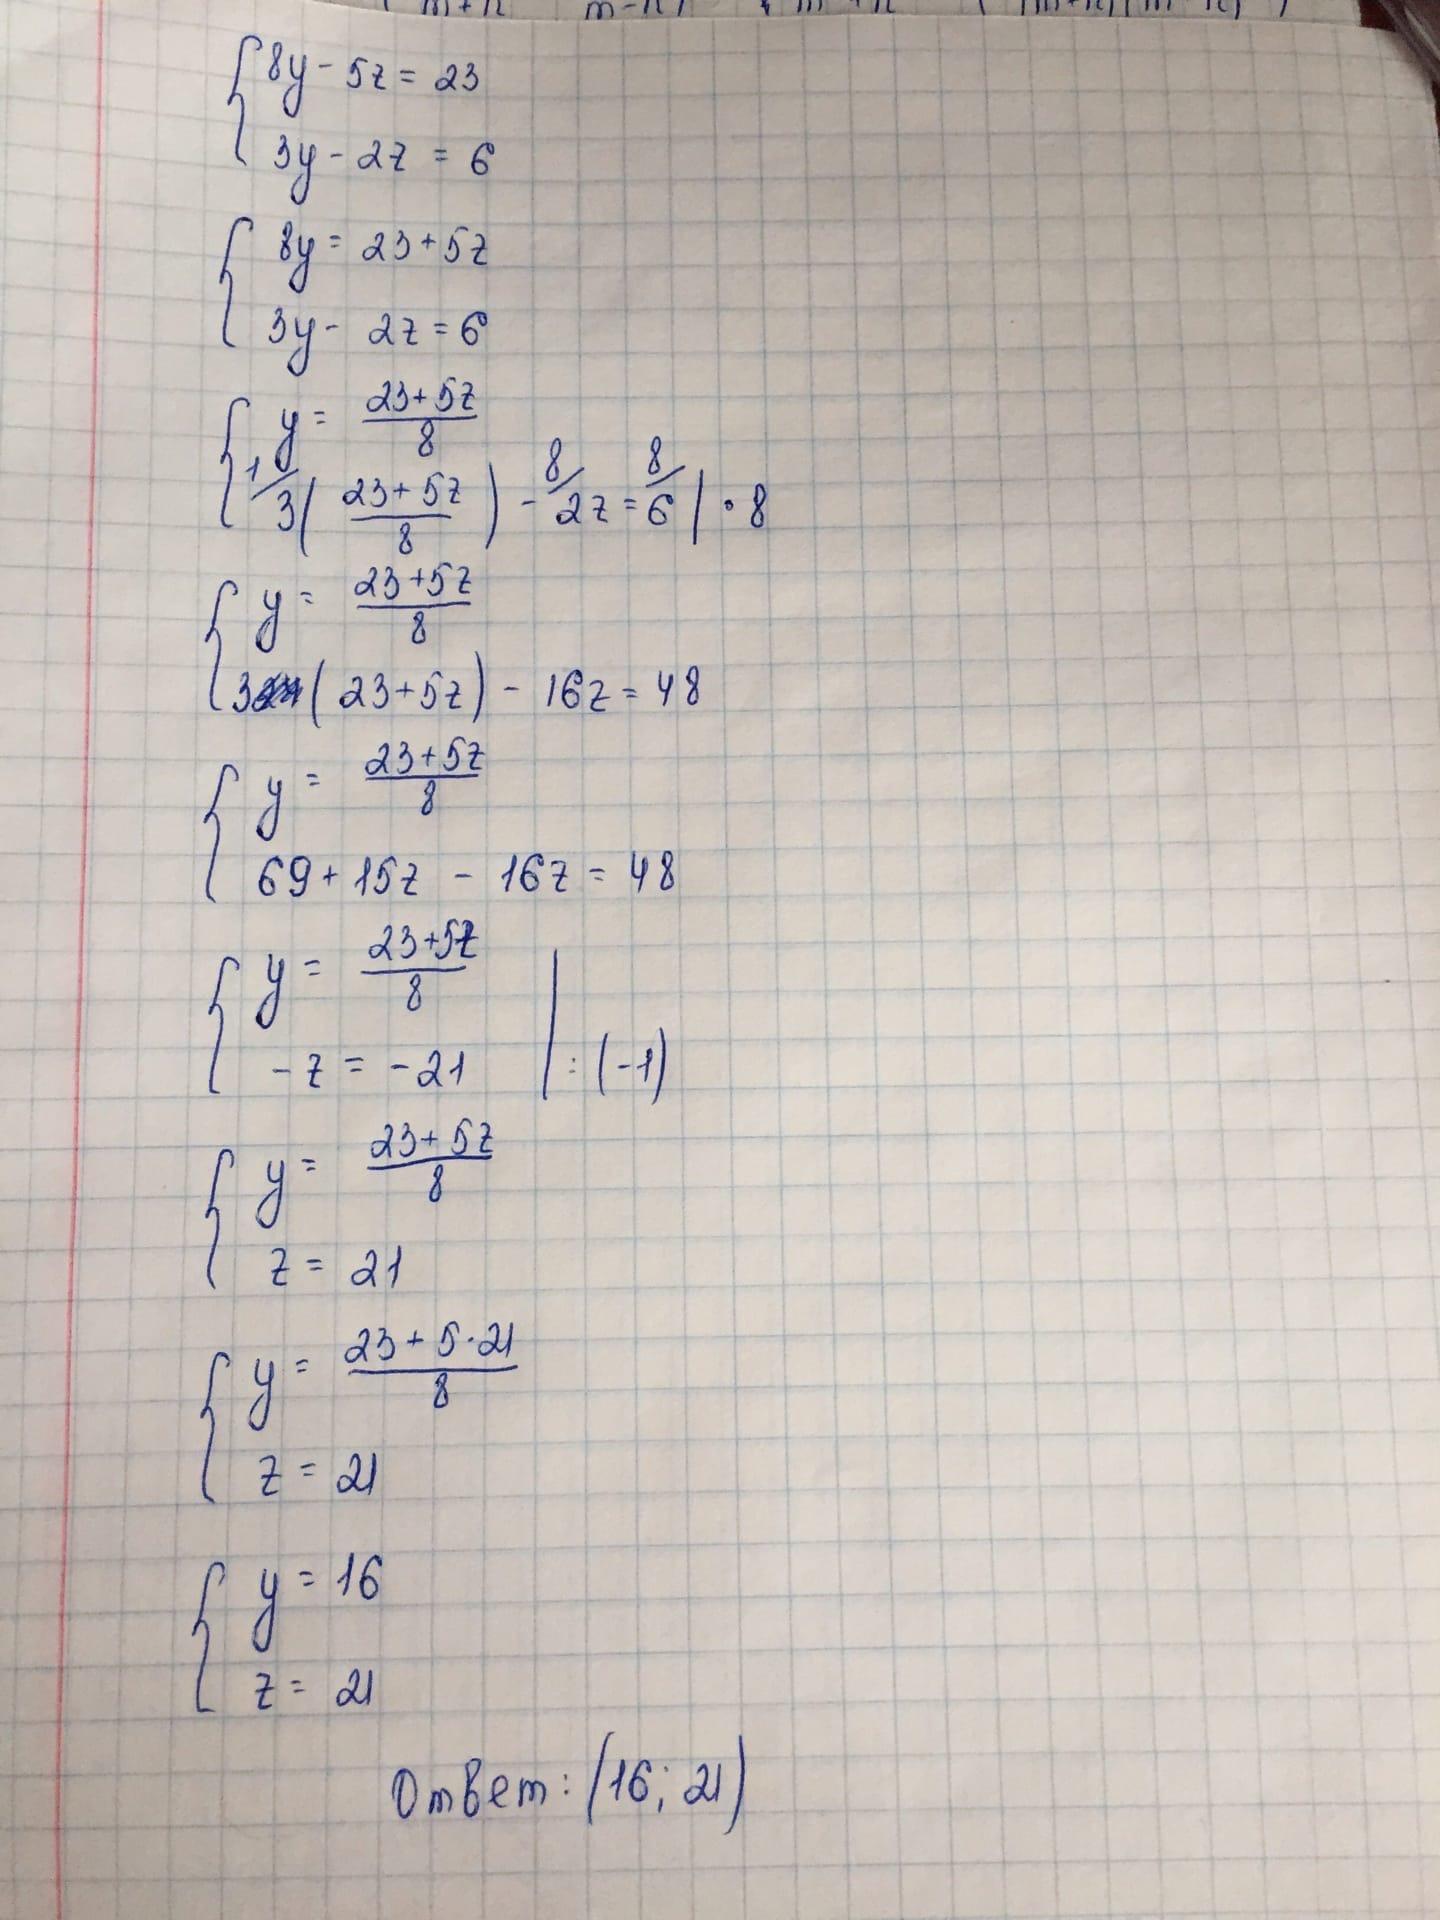 8y - 5z = 23
3y - 2z = 6
8y = 23 + 5z
3y - 2z = 6
y = (23 + 5z)/8
1/ 3((23 + 5z)/8) - 8/ 2z = 8/ 6 | · 8
y = (23 + 5z)/8
3(23 + 5z) - 16z = 48
y = (23 + 5z)/8
69 + 15z - 16z = 48
y = (23 + 5z)/8
-z = -21 | : (-1)
y = (23 + 5z)/8
z = 21
y = (23 + 5 · 21)/8
z = 21
y = 16
z = 21
Ответ: (16; 21)